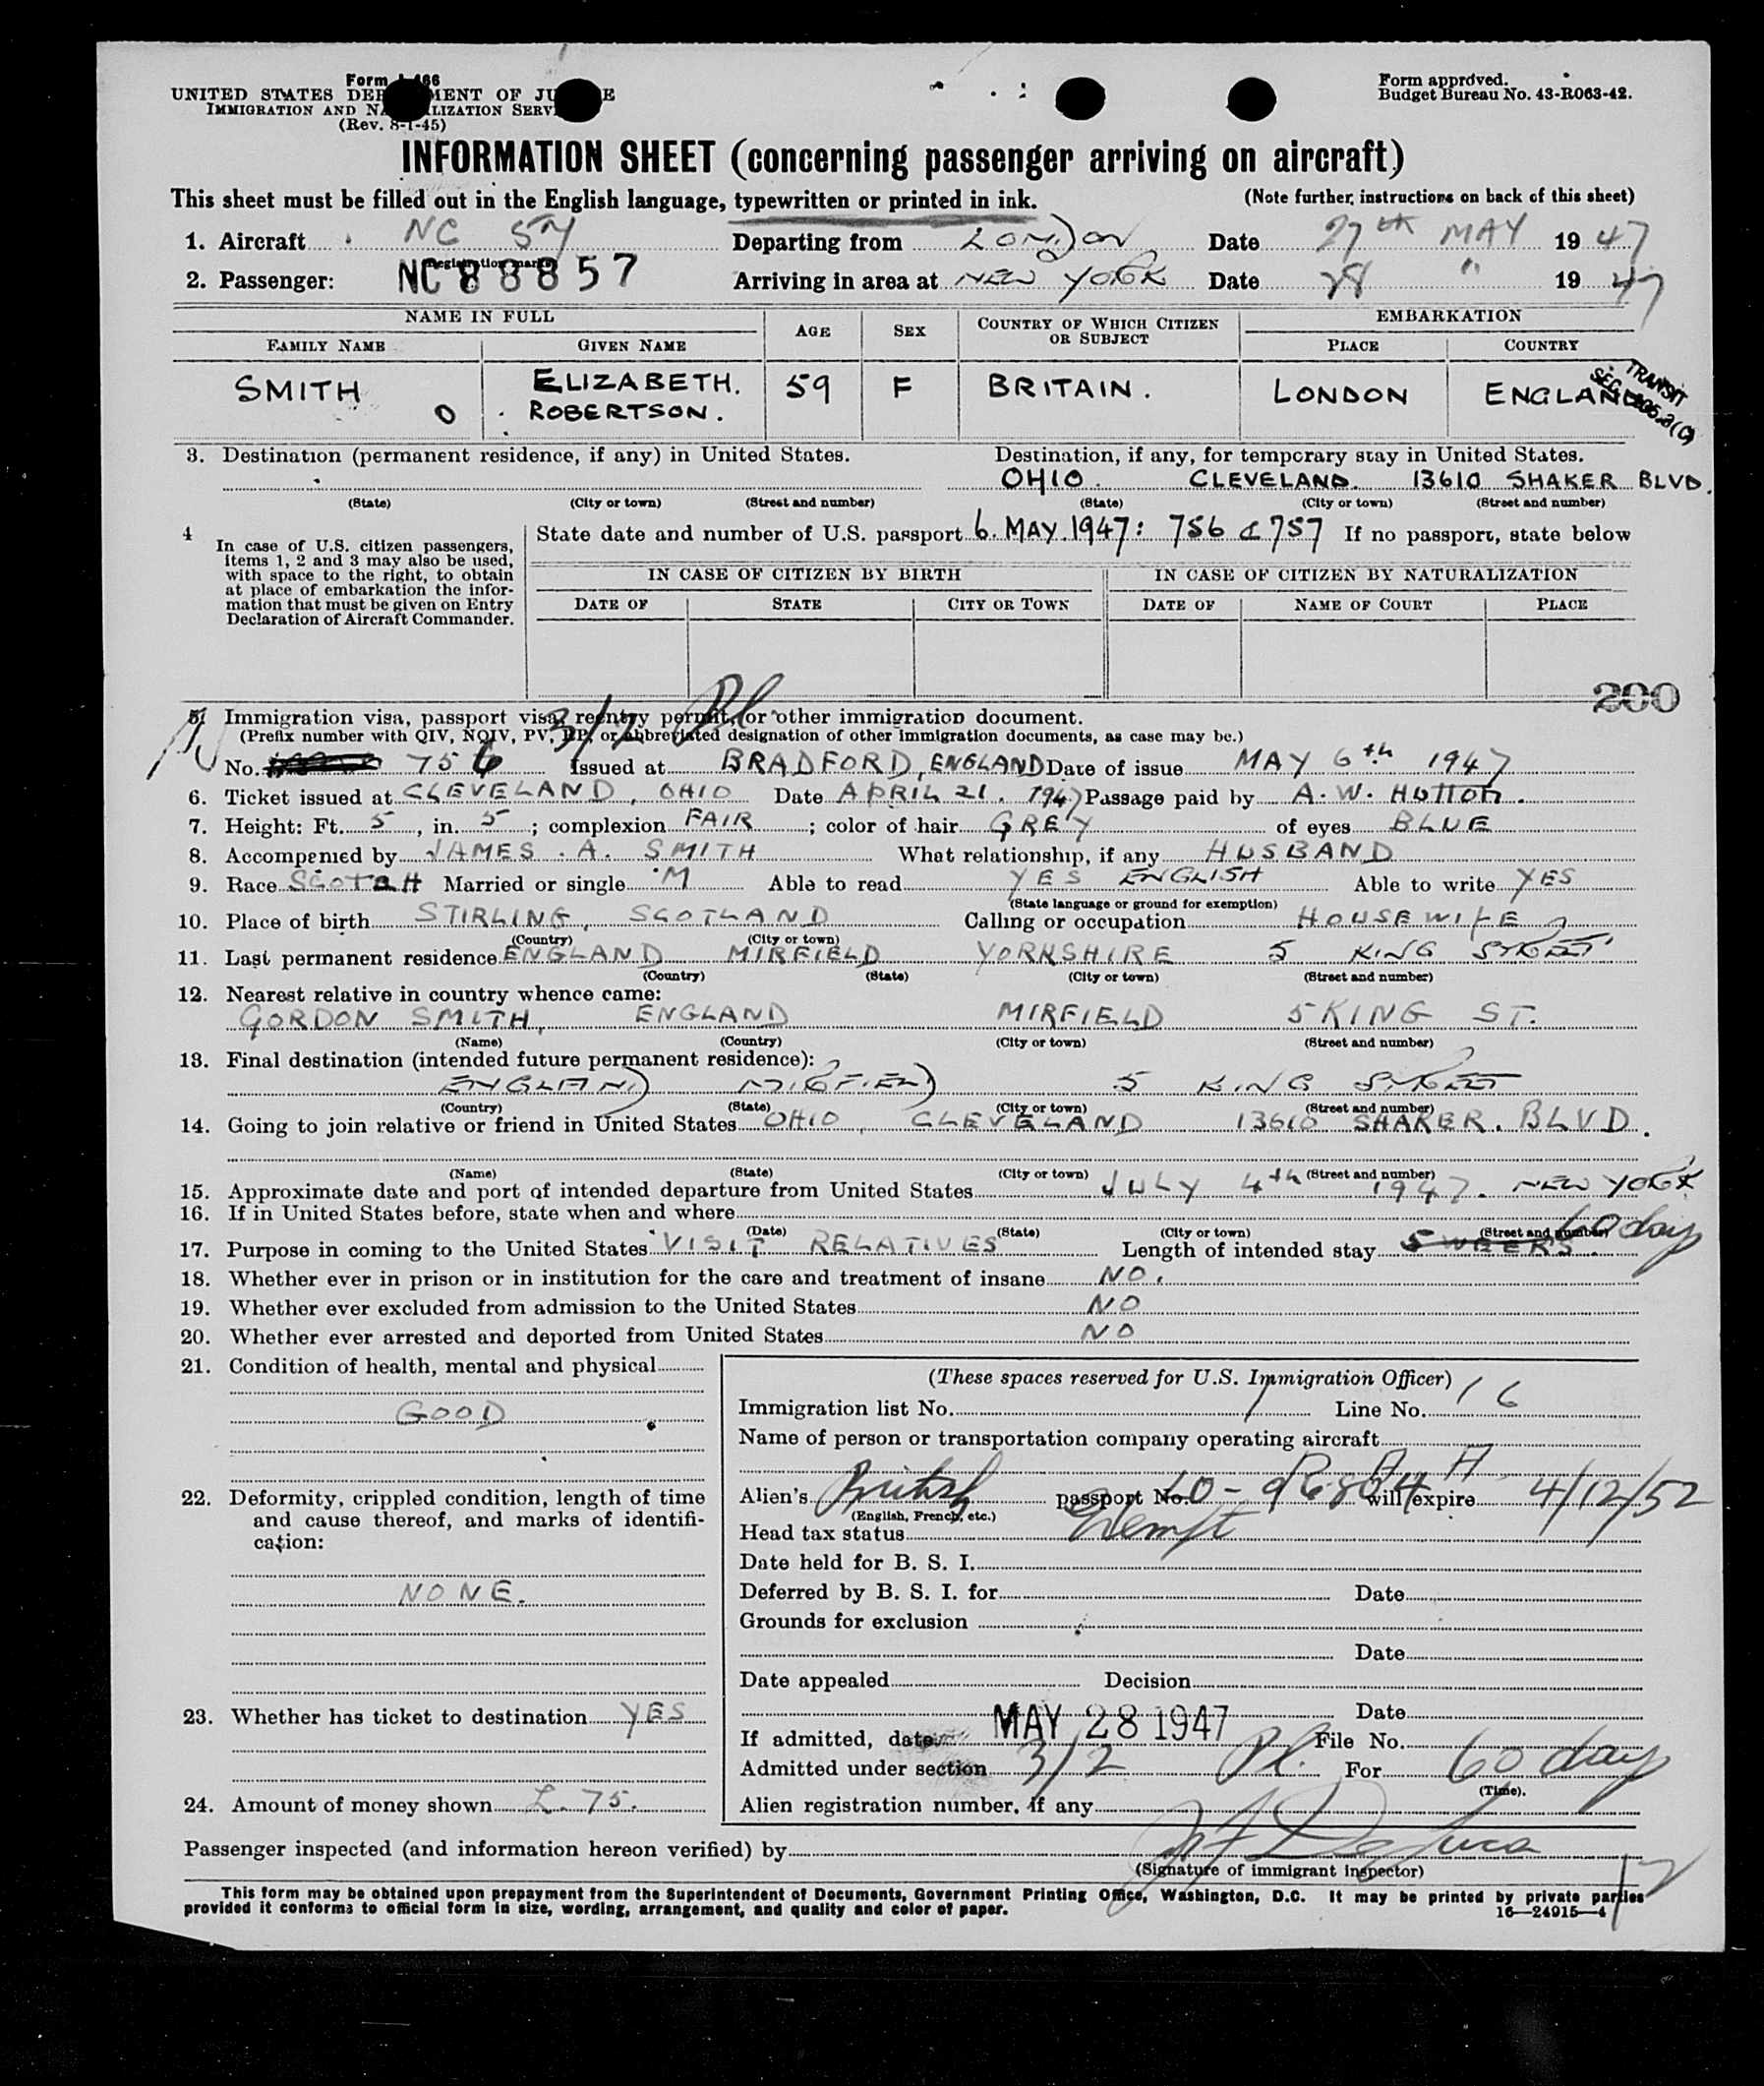 Form I-466
UNITED STATES DEPARTMENT OF JUSTICE
IMMIGRATION AND NATURALIZATION SERVICE
(Rev. 8-1-45)
Form approved.
Budget Bureau No. 43-R063-42.
INFORMATION SHEET (concerning passenger arriving on aircraft)
This sheet must be filled out in the English language, typewritten or printed in ink. (Note further instructions on back of this sheet)
1. Aircraft NC Departing from LONDON Date 27th MAY 1947
(Registration marks)
2. Passenger: NC 88857 Arriving in area at NEW YORK Date 28 " 1947
NAME IN FULL AGE SEX COUNTRY OF WHICH CITIZEN OR SUBJECT EMBARKATION
FAMILY NAME GIVEN NAME PLACE COUNTRY
SMITH ELIZABETH. ROBERTSON. 59 F BRITAIN. LONDON ENGLAND
TRANSIT
3. Destination (permanent residence, if any) in United States. Destination, if any, for temporary stay in United States.
OHIO. CLEVELAND. 13610 SHAKER BLVD.
(State) (City or town) (Street and number) (State) (City or town) (Street and number)
4 In case of U.S. citizen passengers, items 1, 2 and 3 may also be used, with space to the right, to obtain at place of embarkation the information that must be given on Entry Declaration of Aircraft Commander.
State date and number of U.S. passport 6. MAY. 1947: 756 & 757 If no passport, state below
IN CASE OF CITIZEN BY BIRTH IN CASE OF CITIZEN BY NATURALIZATION
DATE OF STATE CITY OR TOWN DATE OF NAME OF COURT PLACE
200
5. Immigration visa, passport visa, reentry permit, or other immigration document.
3/2 Pl
(Prefix number with QIV, NQIV, PV, RP, or abbreviated designation of other immigration documents, as case may be.)
No. 756 Issued at BRADFORD, ENGLAND Date of issue MAY 6th 1947
6. Ticket issued at CLEVELAND, OHIO Date APRIL 21. 1947 Passage paid by A. W. HUTTON.
7. Height: Ft. 5, in. 5; complexion FAIR; color of hair GREY of eyes BLUE
8. Accompanied by JAMES. A. SMITH What relationship, if any HUSBAND
9. Race SCOTCH Married or single M Able to read YES ENGLISH Able to write YES
(State language or ground for exemption)
10. Place of birth STIRLING, SCOTLAND Calling or occupation HOUSEWIFE
(Country) (City or town)
11. Last permanent residence ENGLAND MIRFIELD YORKSHIRE 5 KING STREET
(Country) (State) (City or town) (Street and number)
12. Nearest relative in country whence came:
GORDON SMITH, ENGLAND MIRFIELD 5 KING ST.
(Name) (Country) (City or town) (Street and number)
13. Final destination (intended future permanent residence):
ENGLAND MIRFIELD 5 KING STREET
(Country) (State) (City or town) (Street and number)
14. Going to join relative or friend in United States OHIO, CLEVELAND 13610 SHAKER. BLVD.
(Name) (State) (City or town) (Street and number)
15. Approximate date and port of intended departure from United States JULY 4th 1947. NEW YORK
16. If in United States before, state when and where
(Date) (State) (City or town) (Street and number)
17. Purpose in coming to the United States VISIT RELATIVES Length of intended stay 5 WEEKS 60 day
18. Whether ever in prison or in institution for the care and treatment of insane NO.
19. Whether ever excluded from admission to the United States NO
20. Whether ever arrested and deported from United States NO
21. Condition of health, mental and physical
GOOD
22. Deformity, crippled condition, length of time and cause thereof, and marks of identification:
NONE.
23. Whether has ticket to destination YES
24. Amount of money shown £.75.
(These spaces reserved for U.S. Immigration Officer)
Immigration list No. 1 Line No. 16
Name of person or transportation company operating aircraft
Alien's British passport No. will expire 4/12/52
(English, French, etc.)
Head tax status Exempt
Date held for B. S. I.
Deferred by B. S. I. for Date
Grounds for exclusion
Date
Date appealed Decision
Date
If admitted, date MAY 28 1947 File No.
Admitted under section 3/2 Pl. For 60 day
(Time).
Alien registration number, if any
Passenger inspected (and information hereon verified) by
(Signature of immigrant inspector)
This form may be obtained upon prepayment from the Superintendent of Documents, Government Printing Office, Washington, D.C. It may be printed by private parties
provided it conforms to official form in size, wording, arrangement, and quality and color of paper.
16—24915—4